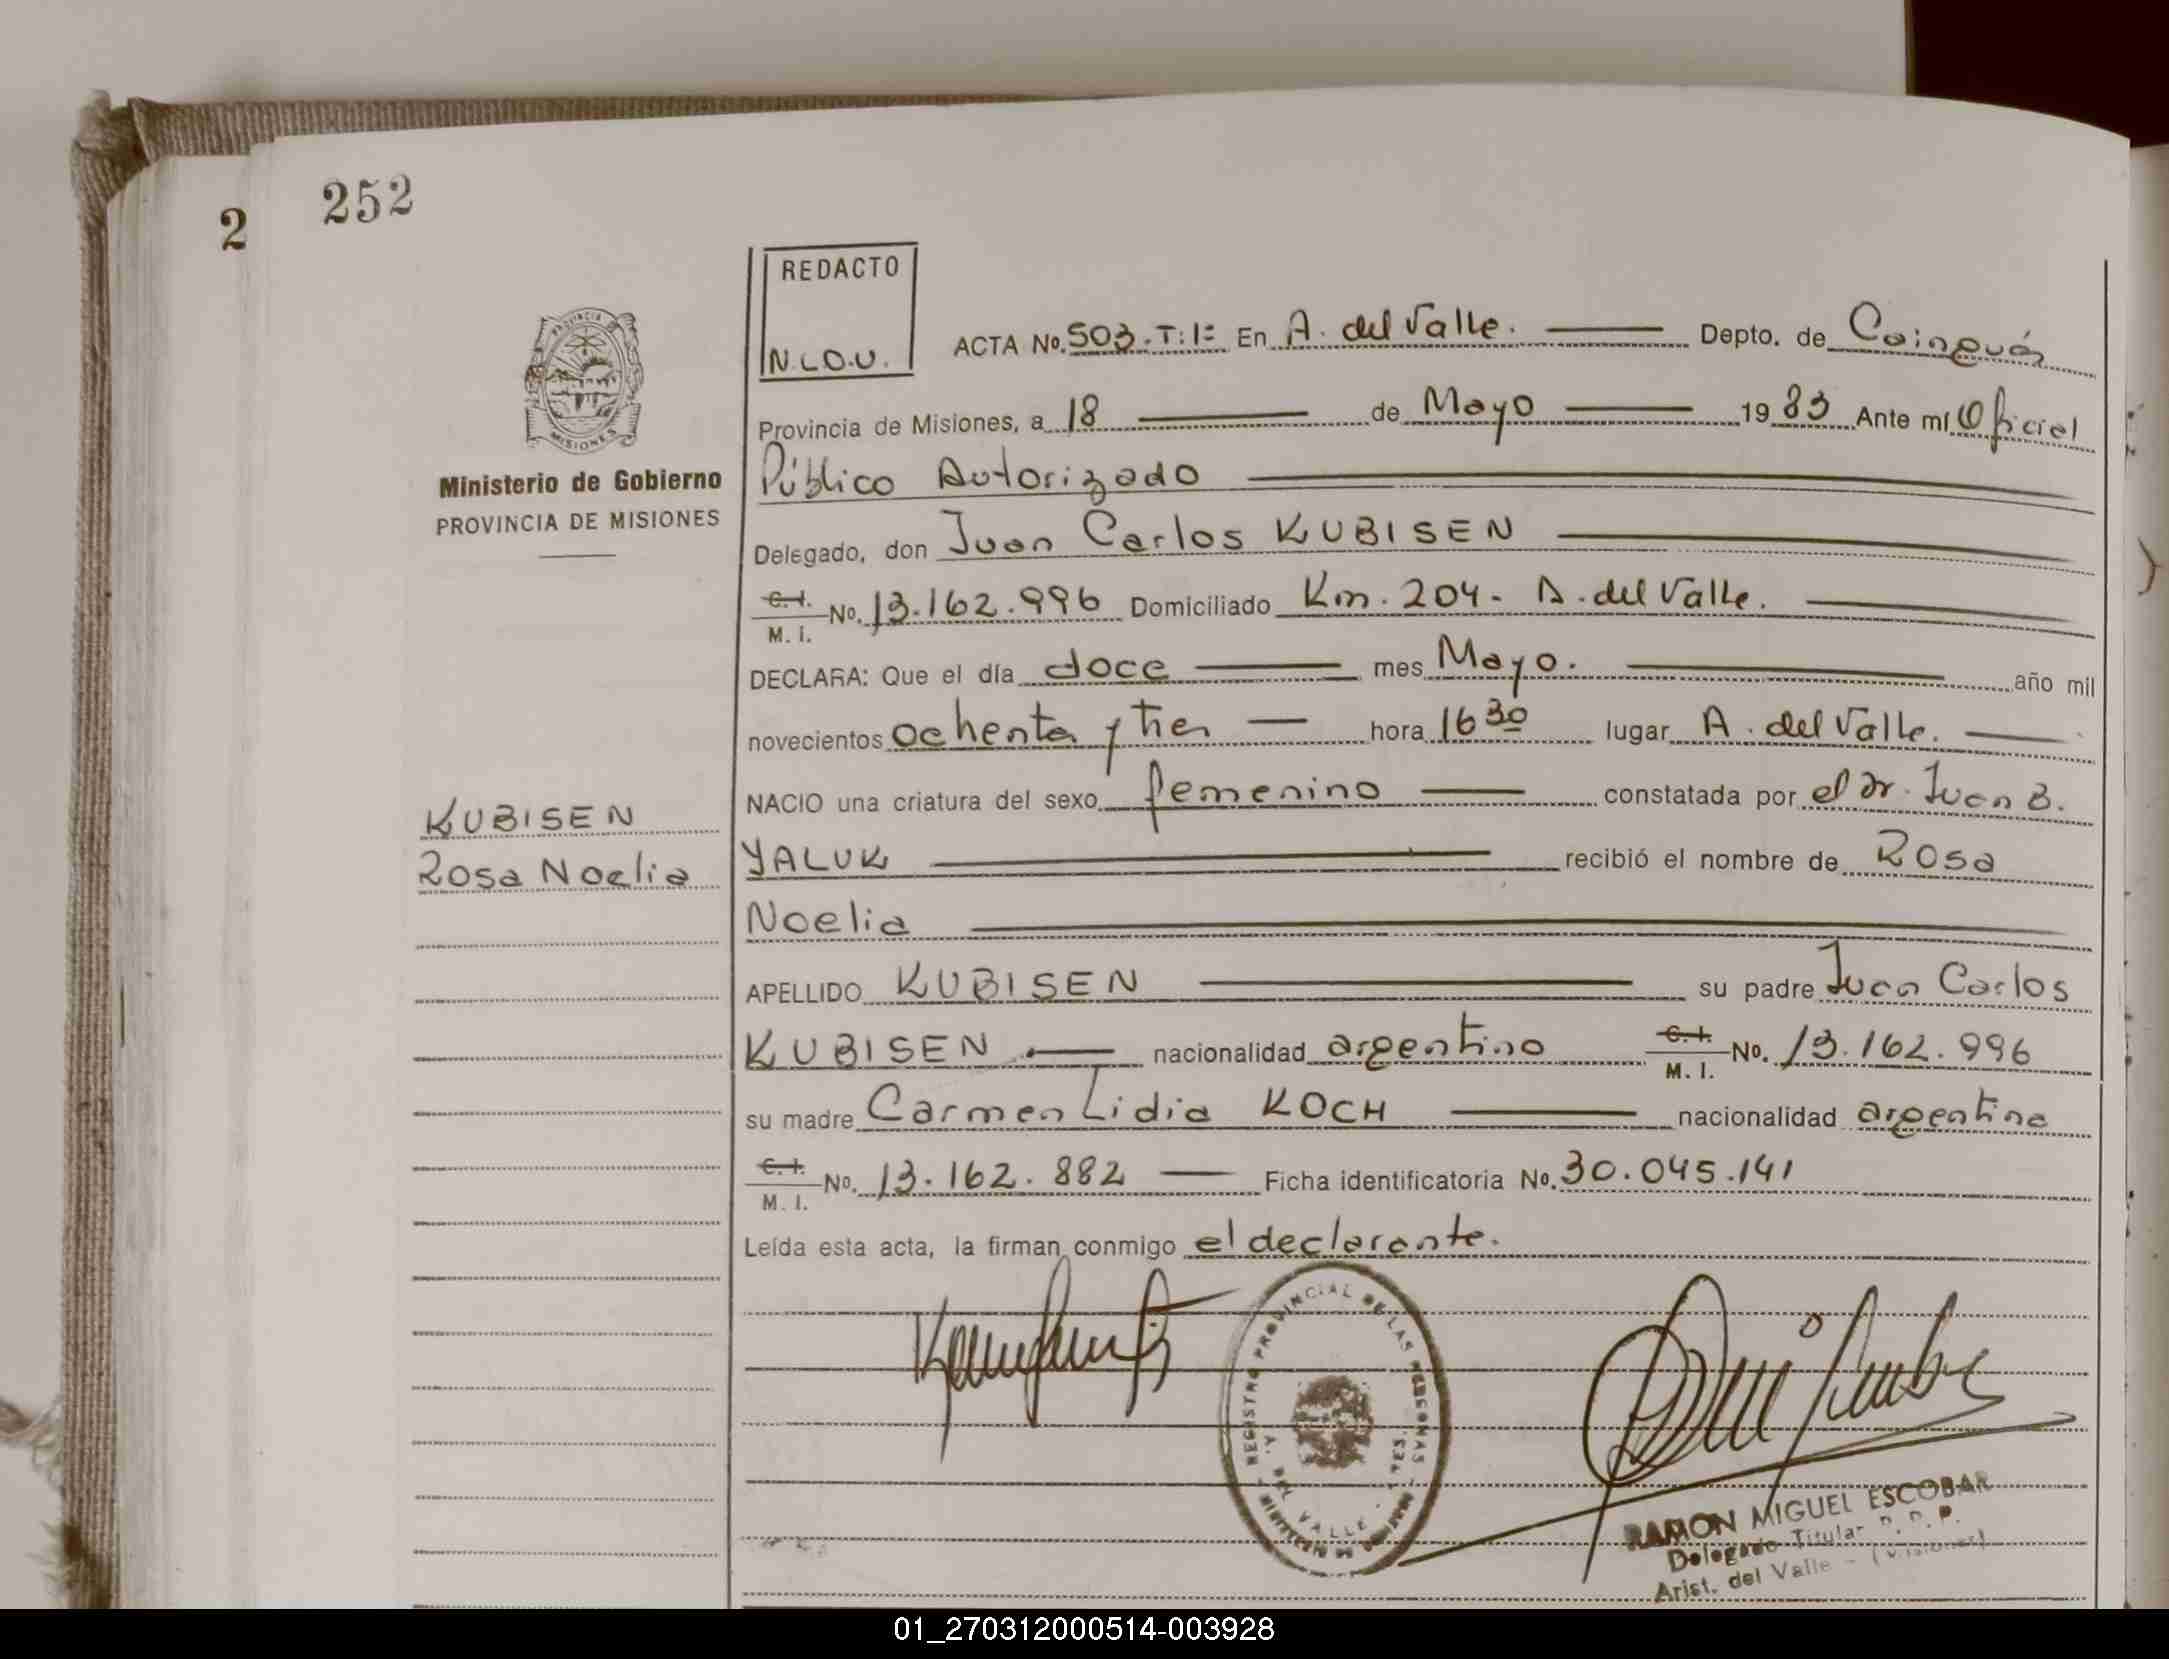 2 252
REDACTO
N.L.O.U.
ACTA No. 503. T: 1º En A. del Valle. Depto. de Cainguás
Provincia de Misiones, a 18 de Mayo 19 83 Ante mí Oficial
Público Autorizado
Delegado, don Juan Carlos KUBISEN
C. I. M. I. No. 13.162.996 Domiciliado Km. 204 - A. del Valle.
DECLARA: Que el día doce mes Mayo. año mil
novecientos ochenta y tres hora 16 30 lugar A. del Valle.
NACIO una criatura del sexo femenino constatada por el Dr. Juan B.
YALUK recibió el nombre de Rosa
Noelia
APELLIDO KUBISEN su padre Juan Carlos
KUBISEN nacionalidad argentino C. I. M. I. No. 13.162.996
su madre Carmen Lidia KOCH nacionalidad argentina
C. I. M. I. No. 13.162.882 Ficha identificatoria No. 30.045.141
Leída esta acta, la firman conmigo el declarante.
PROVINCIA
MISIONES
Ministerio de Gobierno
PROVINCIA DE MISIONES
KUBISEN
Rosa Noelia
REGISTRO PROVINCIAL DE LAS PERSONAS
DEL VALLE
RAMON MIGUEL ESCOBAR
Delegado Titular R. P. P.
Arist. del Valle - (Misiones)
01_270312000514-003928